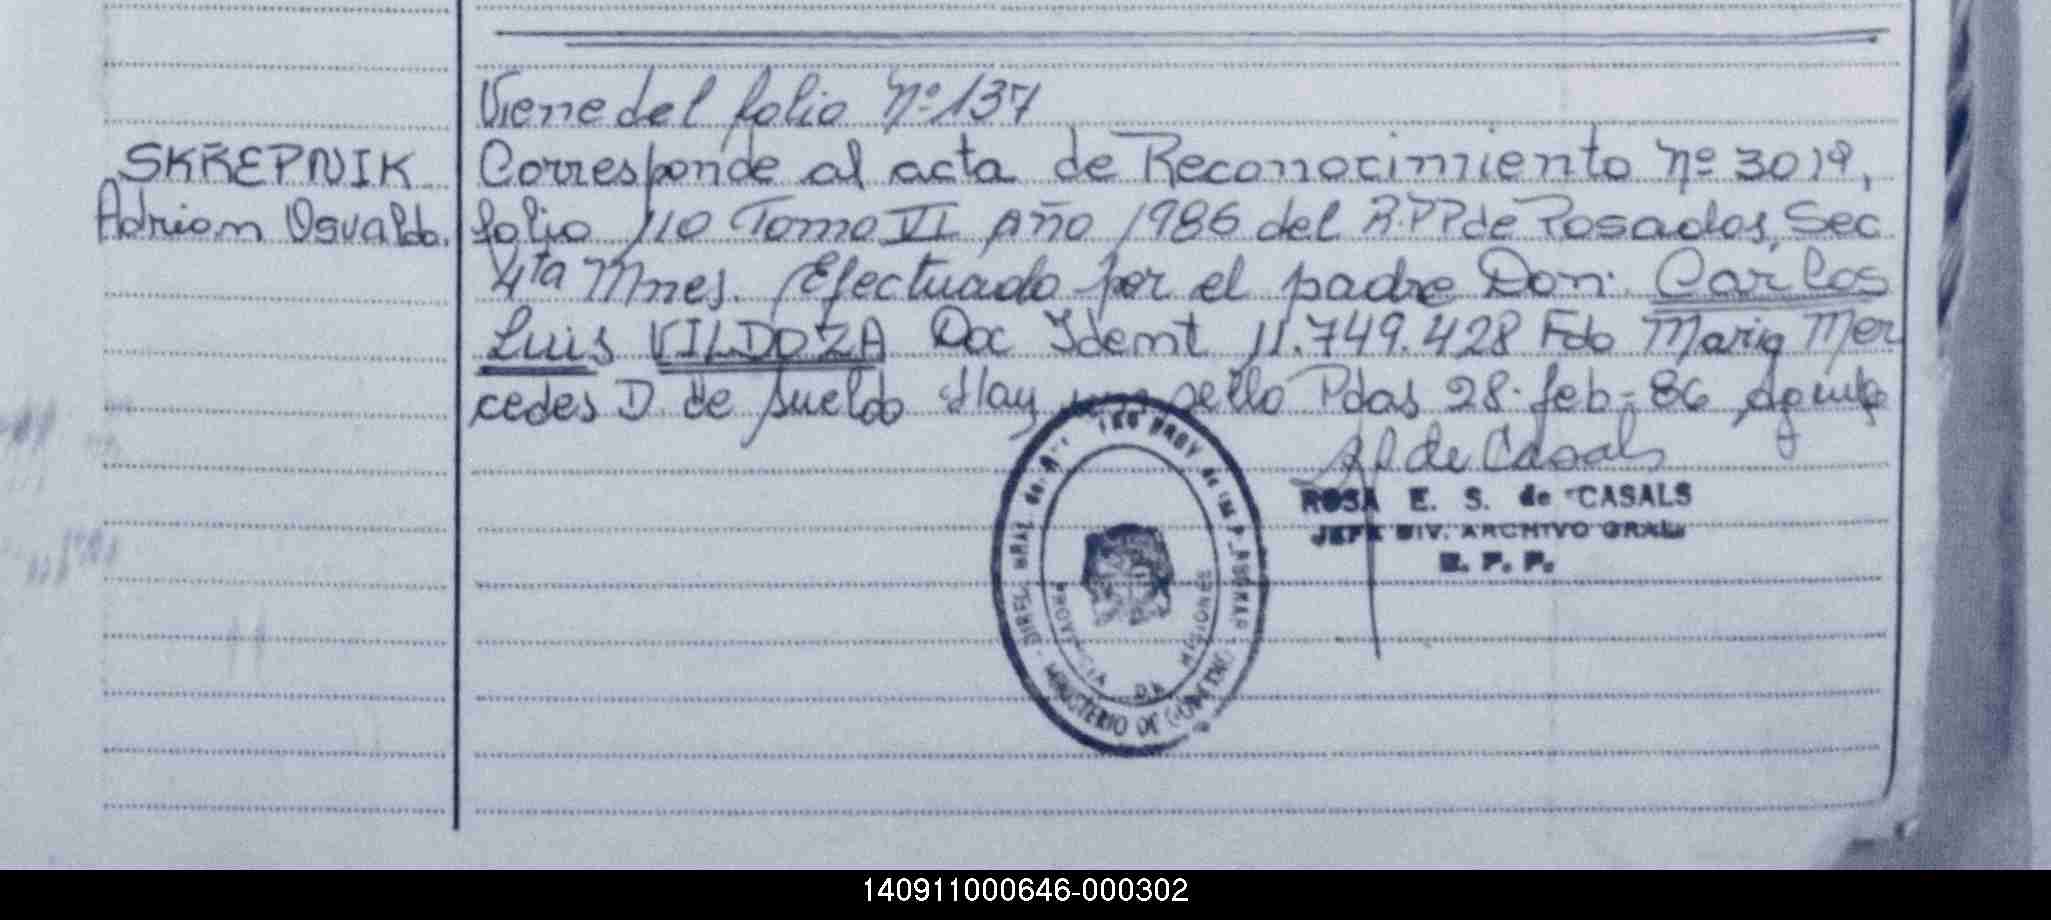 Viene del folio Nº 137
SKREPNIK
Adrian Osvaldo.
Corresponde al acta de Reconocimiento Nº 3019,
folio 110 Tomo VI Año 1986 del R.P.P de Posadas, Sec
4ta Mnes. Efectuado por el padre Don. Carlos
Luis VILDOZA Doc Ident 11.749.428 Fdo Maria Mer
cedes D. de Sueldo Hay un sello Pdas 28-feb-86
de Casals
ROSA E. S. de CASALS
JEFE DIV. ARCHIVO GRAL.
R. P. P.
PROVINCIA DE MISIONES
MINISTERIO DE GOBIERNO
140911000646-000302